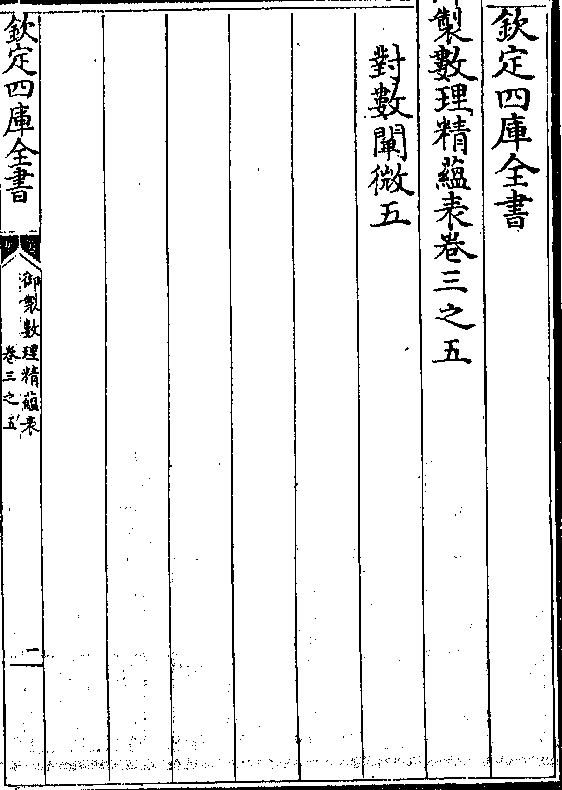 欽定四庫全書
御製數理精蘊表卷三之五
對數闡微五
欽定四庫全書
御製數理精蘊表
卷三之五
二